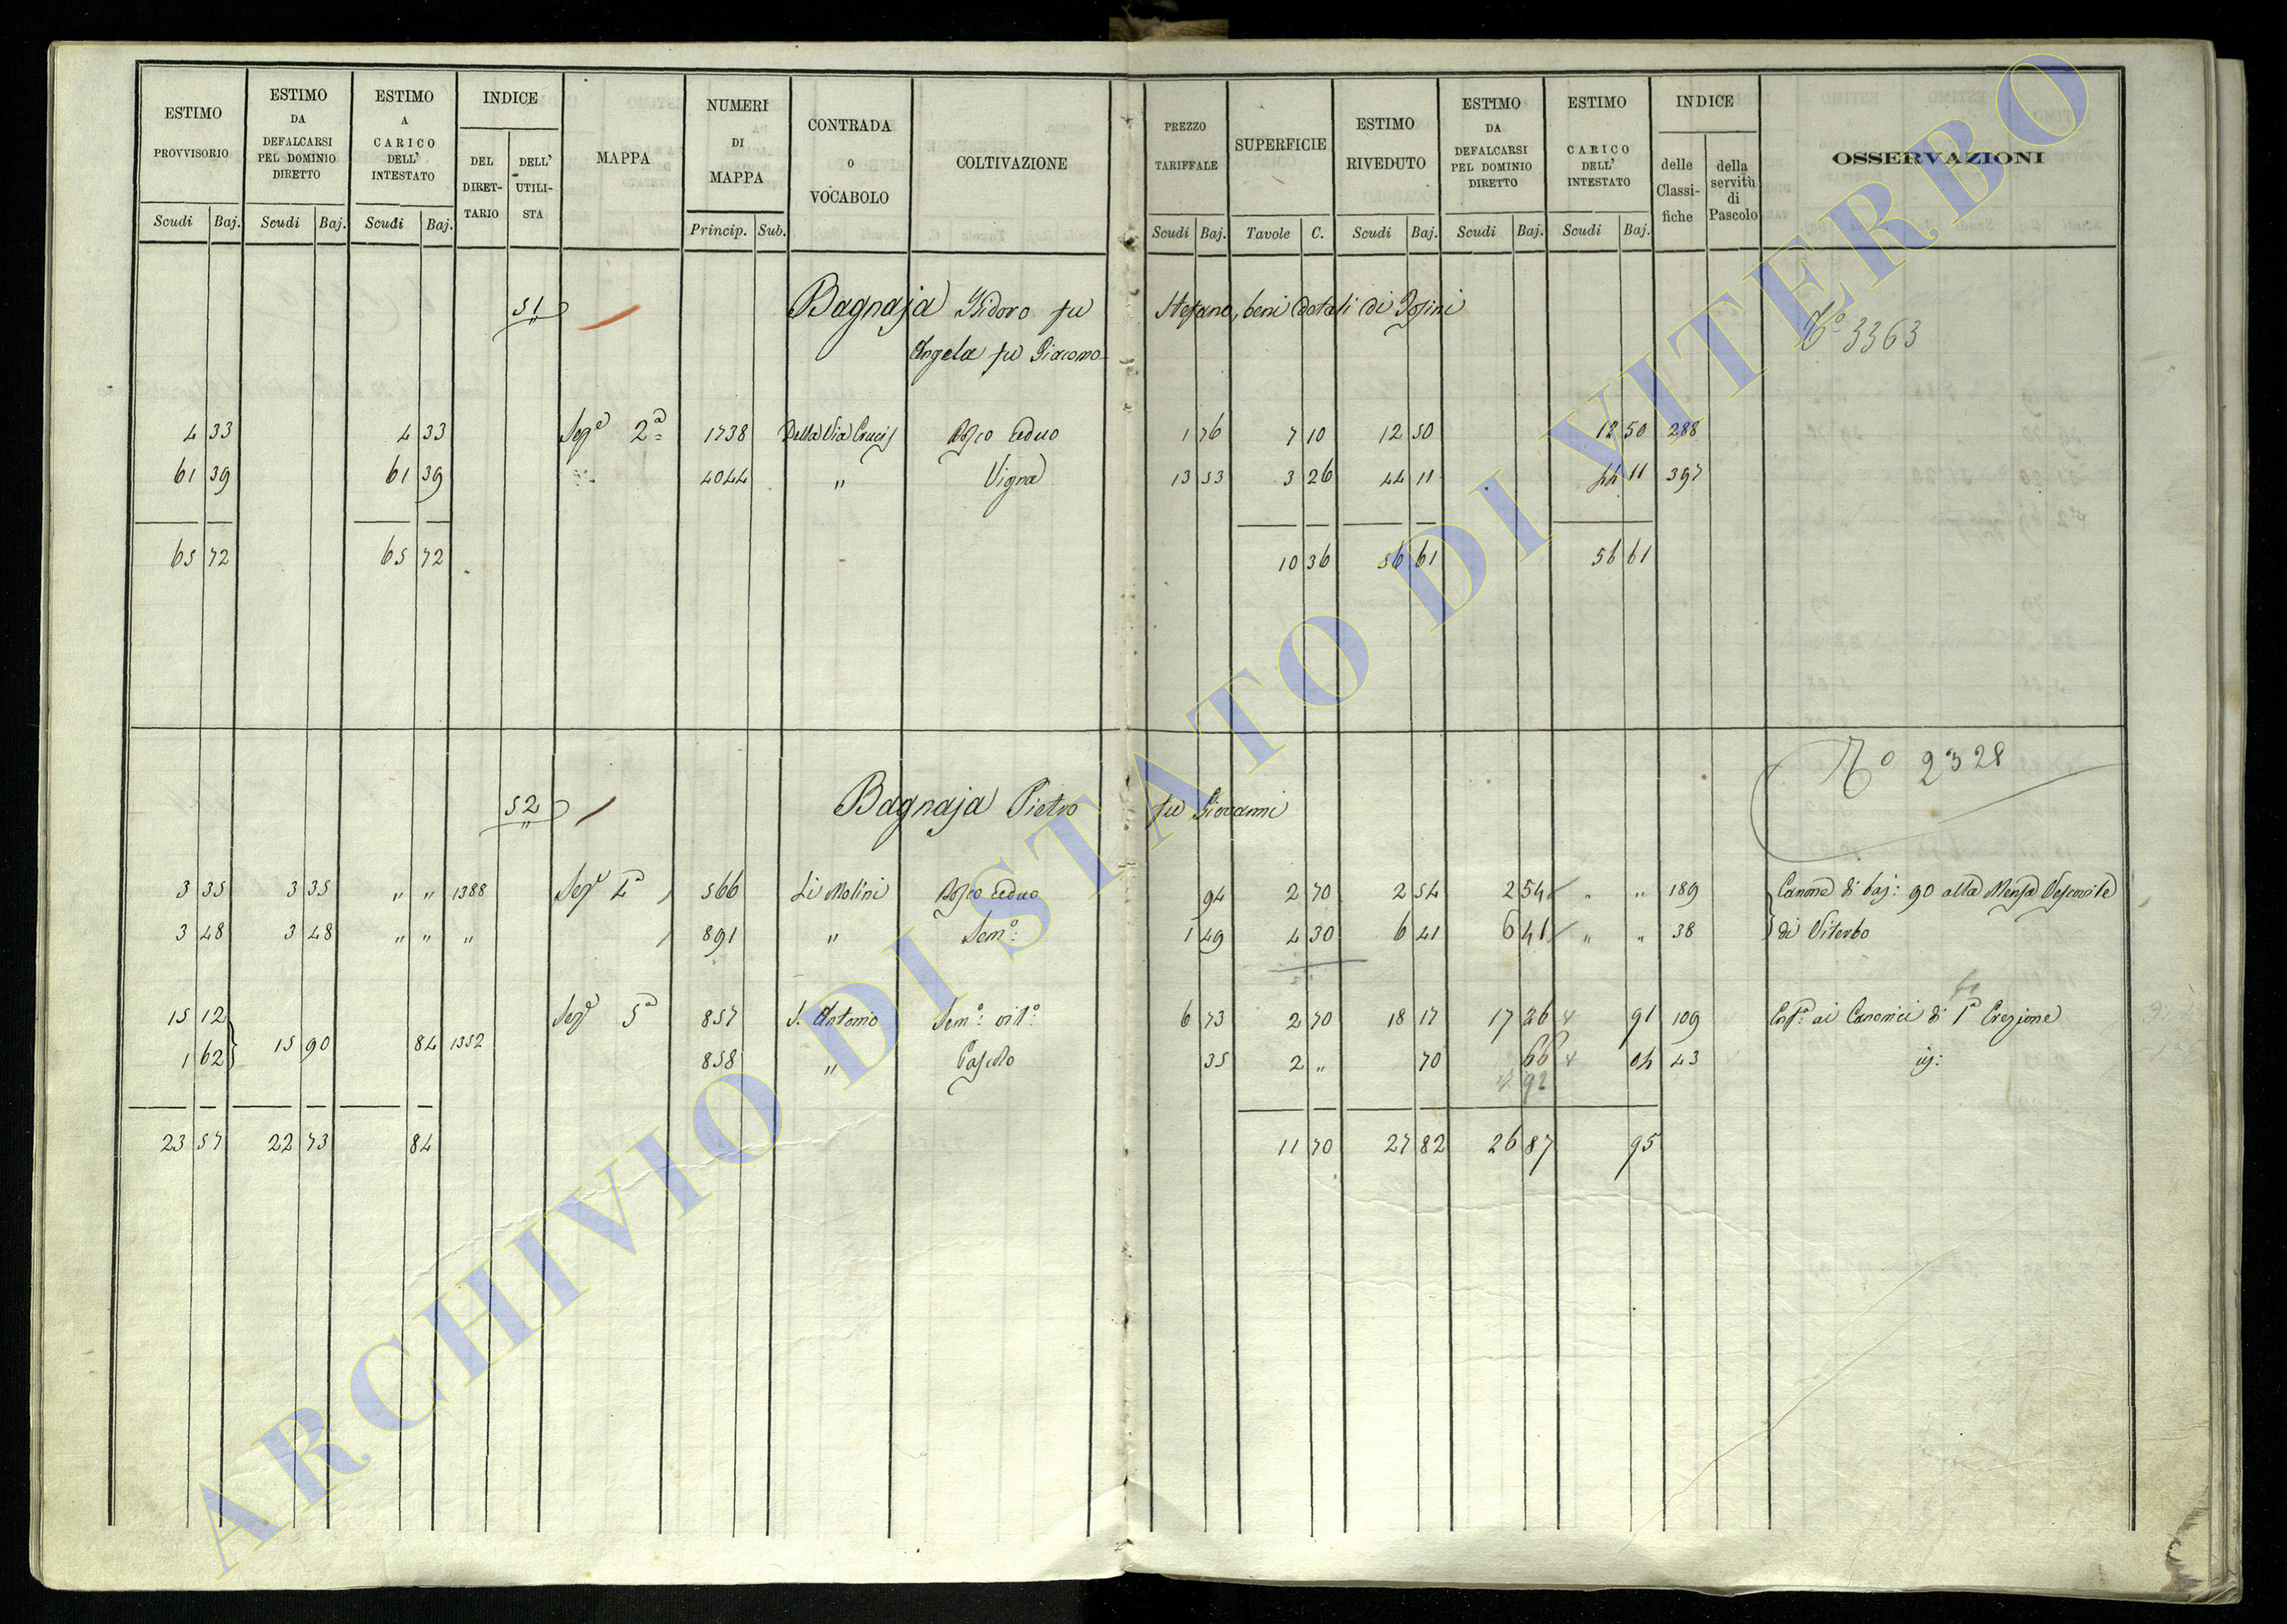 ESTIMO PROVVISORIO
Scudi Baj.
ESTIMO DA DEFALCARSI PEL DOMINIO DIRETTO
Scudi Baj.
ESTIMO A CARICO DELL' INTESTATO
Scudi Baj.
INDICE
DEL DIRET-TARIO
DELL' UTILI-STA
MAPPA
NUMERI DI MAPPA
Princip. Sub.
CONTRADA o VOCABOLO
COLTIVAZIONE
PREZZO TARIFFALE
Scudi Baj.
SUPERFICIE
Tavole C.
ESTIMO RIVEDUTO
Scudi Baj.
ESTIMO DA DEFALCARSI PEL DOMINIO DIRETTO
Scudi Baj.
ESTIMO A CARICO DELL' INTESTATO
Scudi Baj.
INDICE
delle Classi-fiche
della servitù di Pascolo
OSSERVAZIONI
51 Bagnaja Isidoro fu Stefano, beni dotali di Rosini
Angela fu Giacomo
3363
4 33 4 33 Sez.e 2a 1738 Della Via Crucis Bosco Ceduo 1 76 7 10 12 50 12 50 288
61 39 61 39 4044 " Vigna 13 53 3 26 44 11 44 11 397
65 72 65 72 10 36 56 61 56 61
52 Bagnaja Pietro fu Giovanni
2328
3 35 3 35 " " 1388 Sez.e 566 Li Molini Bosco Ceduo 94 2 70 2 54 2 54 " " 189 Canone di baj: 90 alla Mensa Vescovile
3 48 3 48 " " " 891 " Sem.o: 1 49 4 30 6 41 6 41 " " 38 di Viterbo
15 12 Sez.e 5a 857 S. Antonio Sem.o: vit.o: 6 73 2 70 18 17 17 26 91 109 ai Canonici di 1a Erezione
1 62 15 90 84 1352 858 " Pascolo 35 2 " 70 66 04 43
92
23 57 22 73 84 11 70 27 82 26 87 95
ARCHIVIO DI STATO DI VITERBO